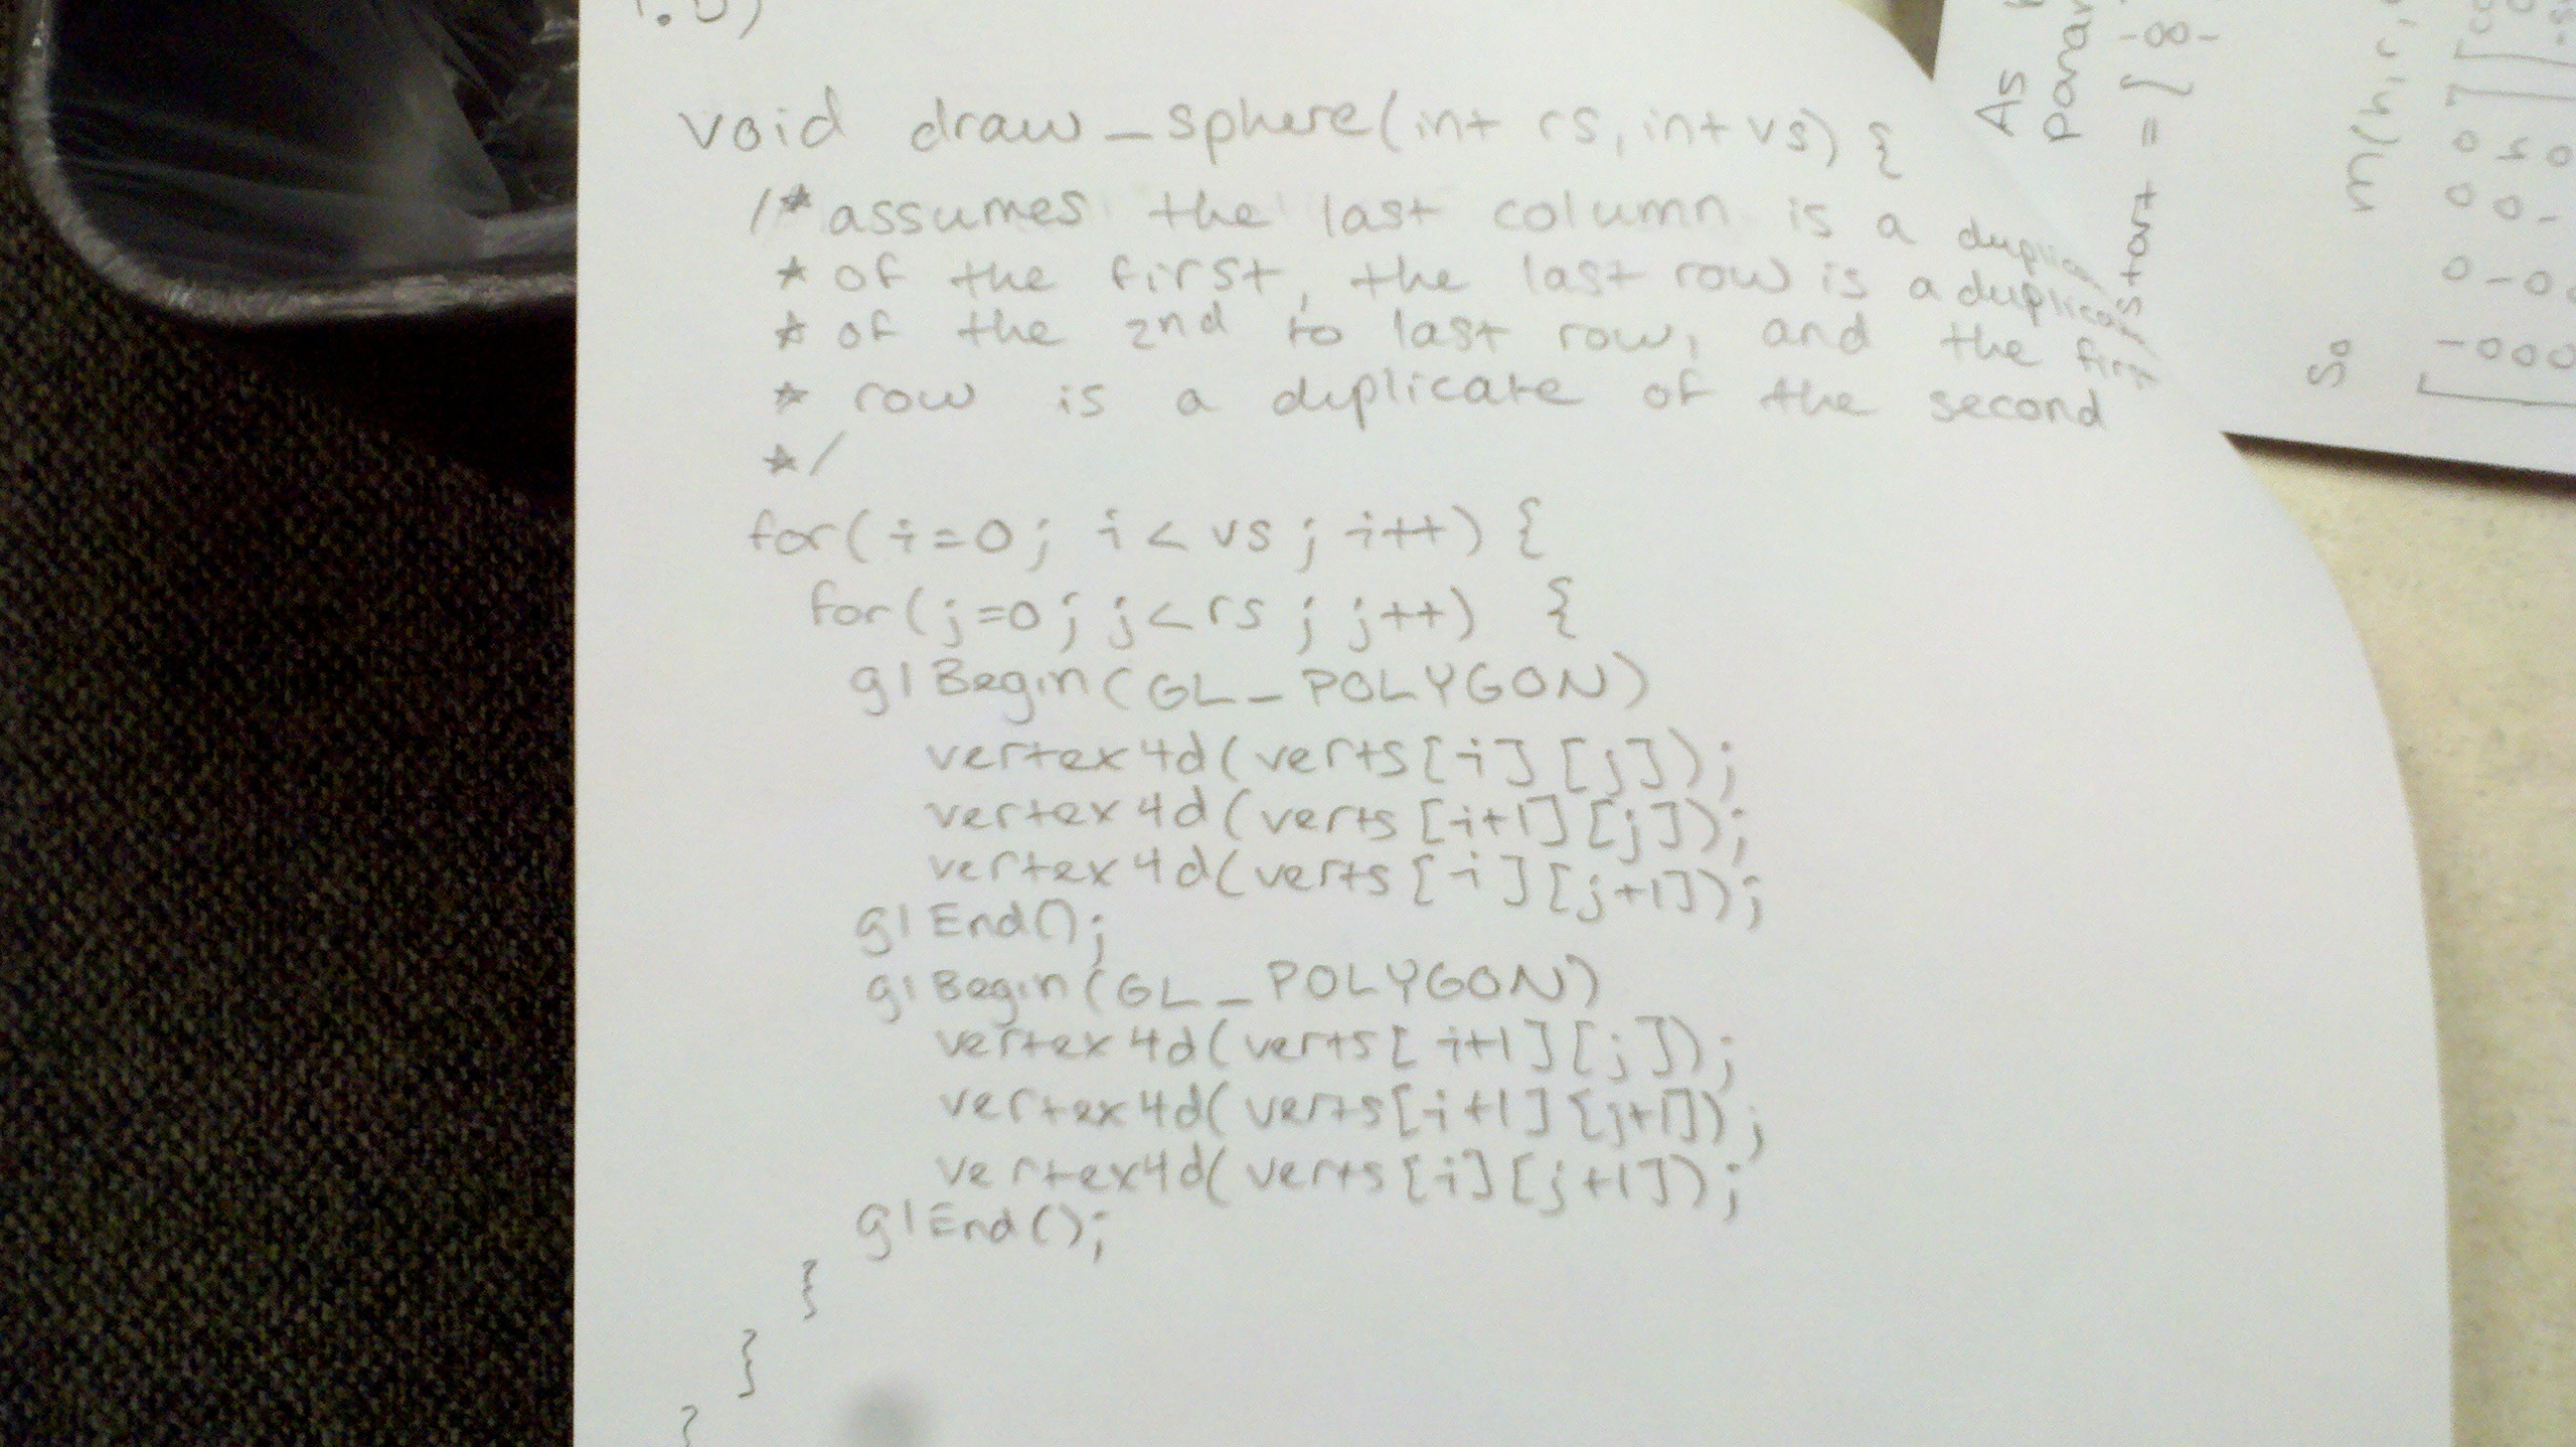 void draw_sphere(int rs, int vs) {
/* assumes the last column is a
* of the first, the last row is a duplicate
* of the 2nd to last row, and the first
* row is a duplicate of the second
*/
for(i=0; i<vs; i++) {
for(j=0; j<rs; j++) {
glBegin(GL_POLYGON)
vertex4d(verts[i][j]);
vertex4d(verts[i+1][j]);
vertex4d(verts[i][j+1]);
glEnd();
glBegin(GL_POLYGON)
vertex4d(verts[i+1][j]);
vertex4d(verts[i+1][j+1]);
vertex4d(verts[i][j+1]);
glEnd();
}
}
}
As
start = [
m(h,r,
So